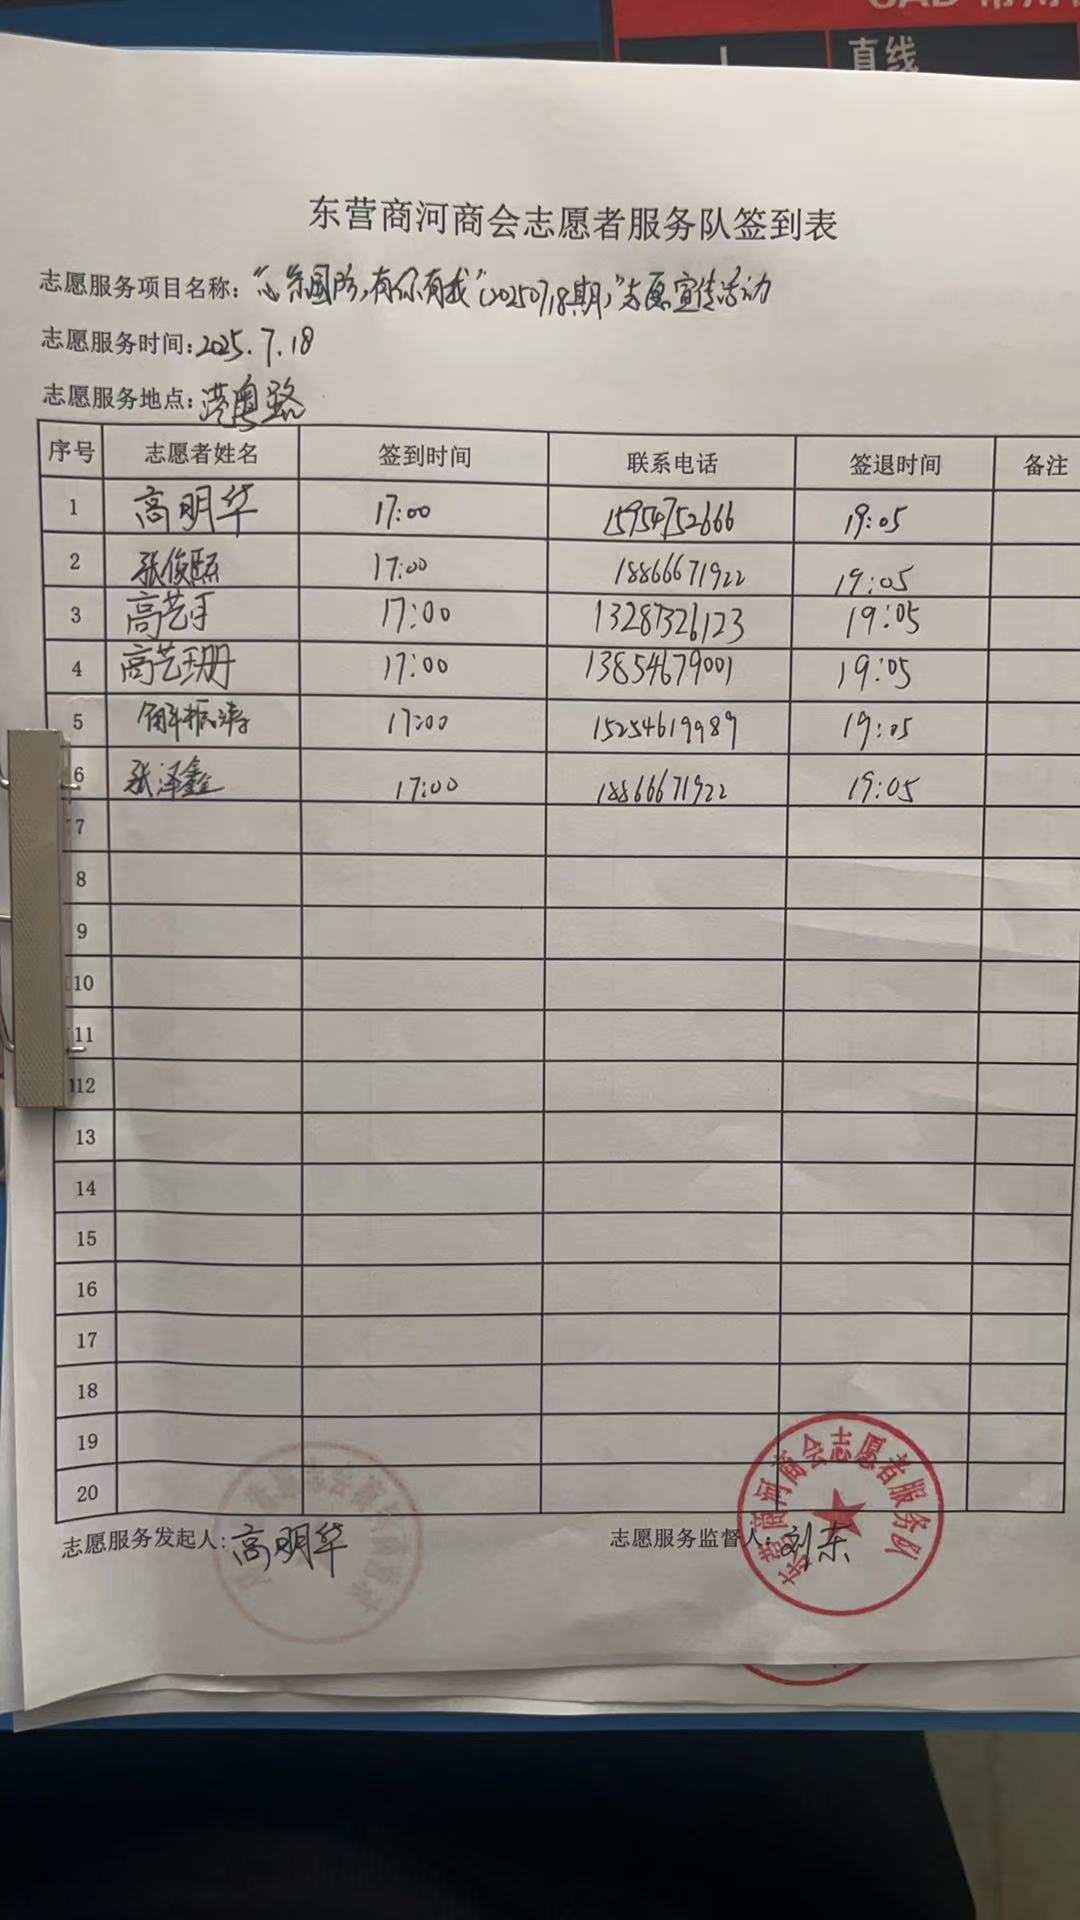 直线
东营商河商会志愿者服务队签到表
志愿服务项目名称:“心系国防,有你有我”(20250718期)”志愿宣传活动
志愿服务时间:2025.7.18
志愿服务地点:港粤路
序号 志愿者姓名 签到时间 联系电话 签退时间 备注
1 高明华 17:00 15954752666 19:05
2 张俊熙 17:00 18866671922 19:05
3 高艺 17:00 13287326123 19:05
4 高艺珊 17:00 13854679001 19:05
5 解振涛 17:00 15254619989 19:05
6 张泽鑫 17:00 18866671922 19:05
7
8
9
10
11
12
13
14
15
16
17
18
19
20
志愿服务发起人:高明华 志愿服务监督人:刘东
东营商河商会志愿者服务队